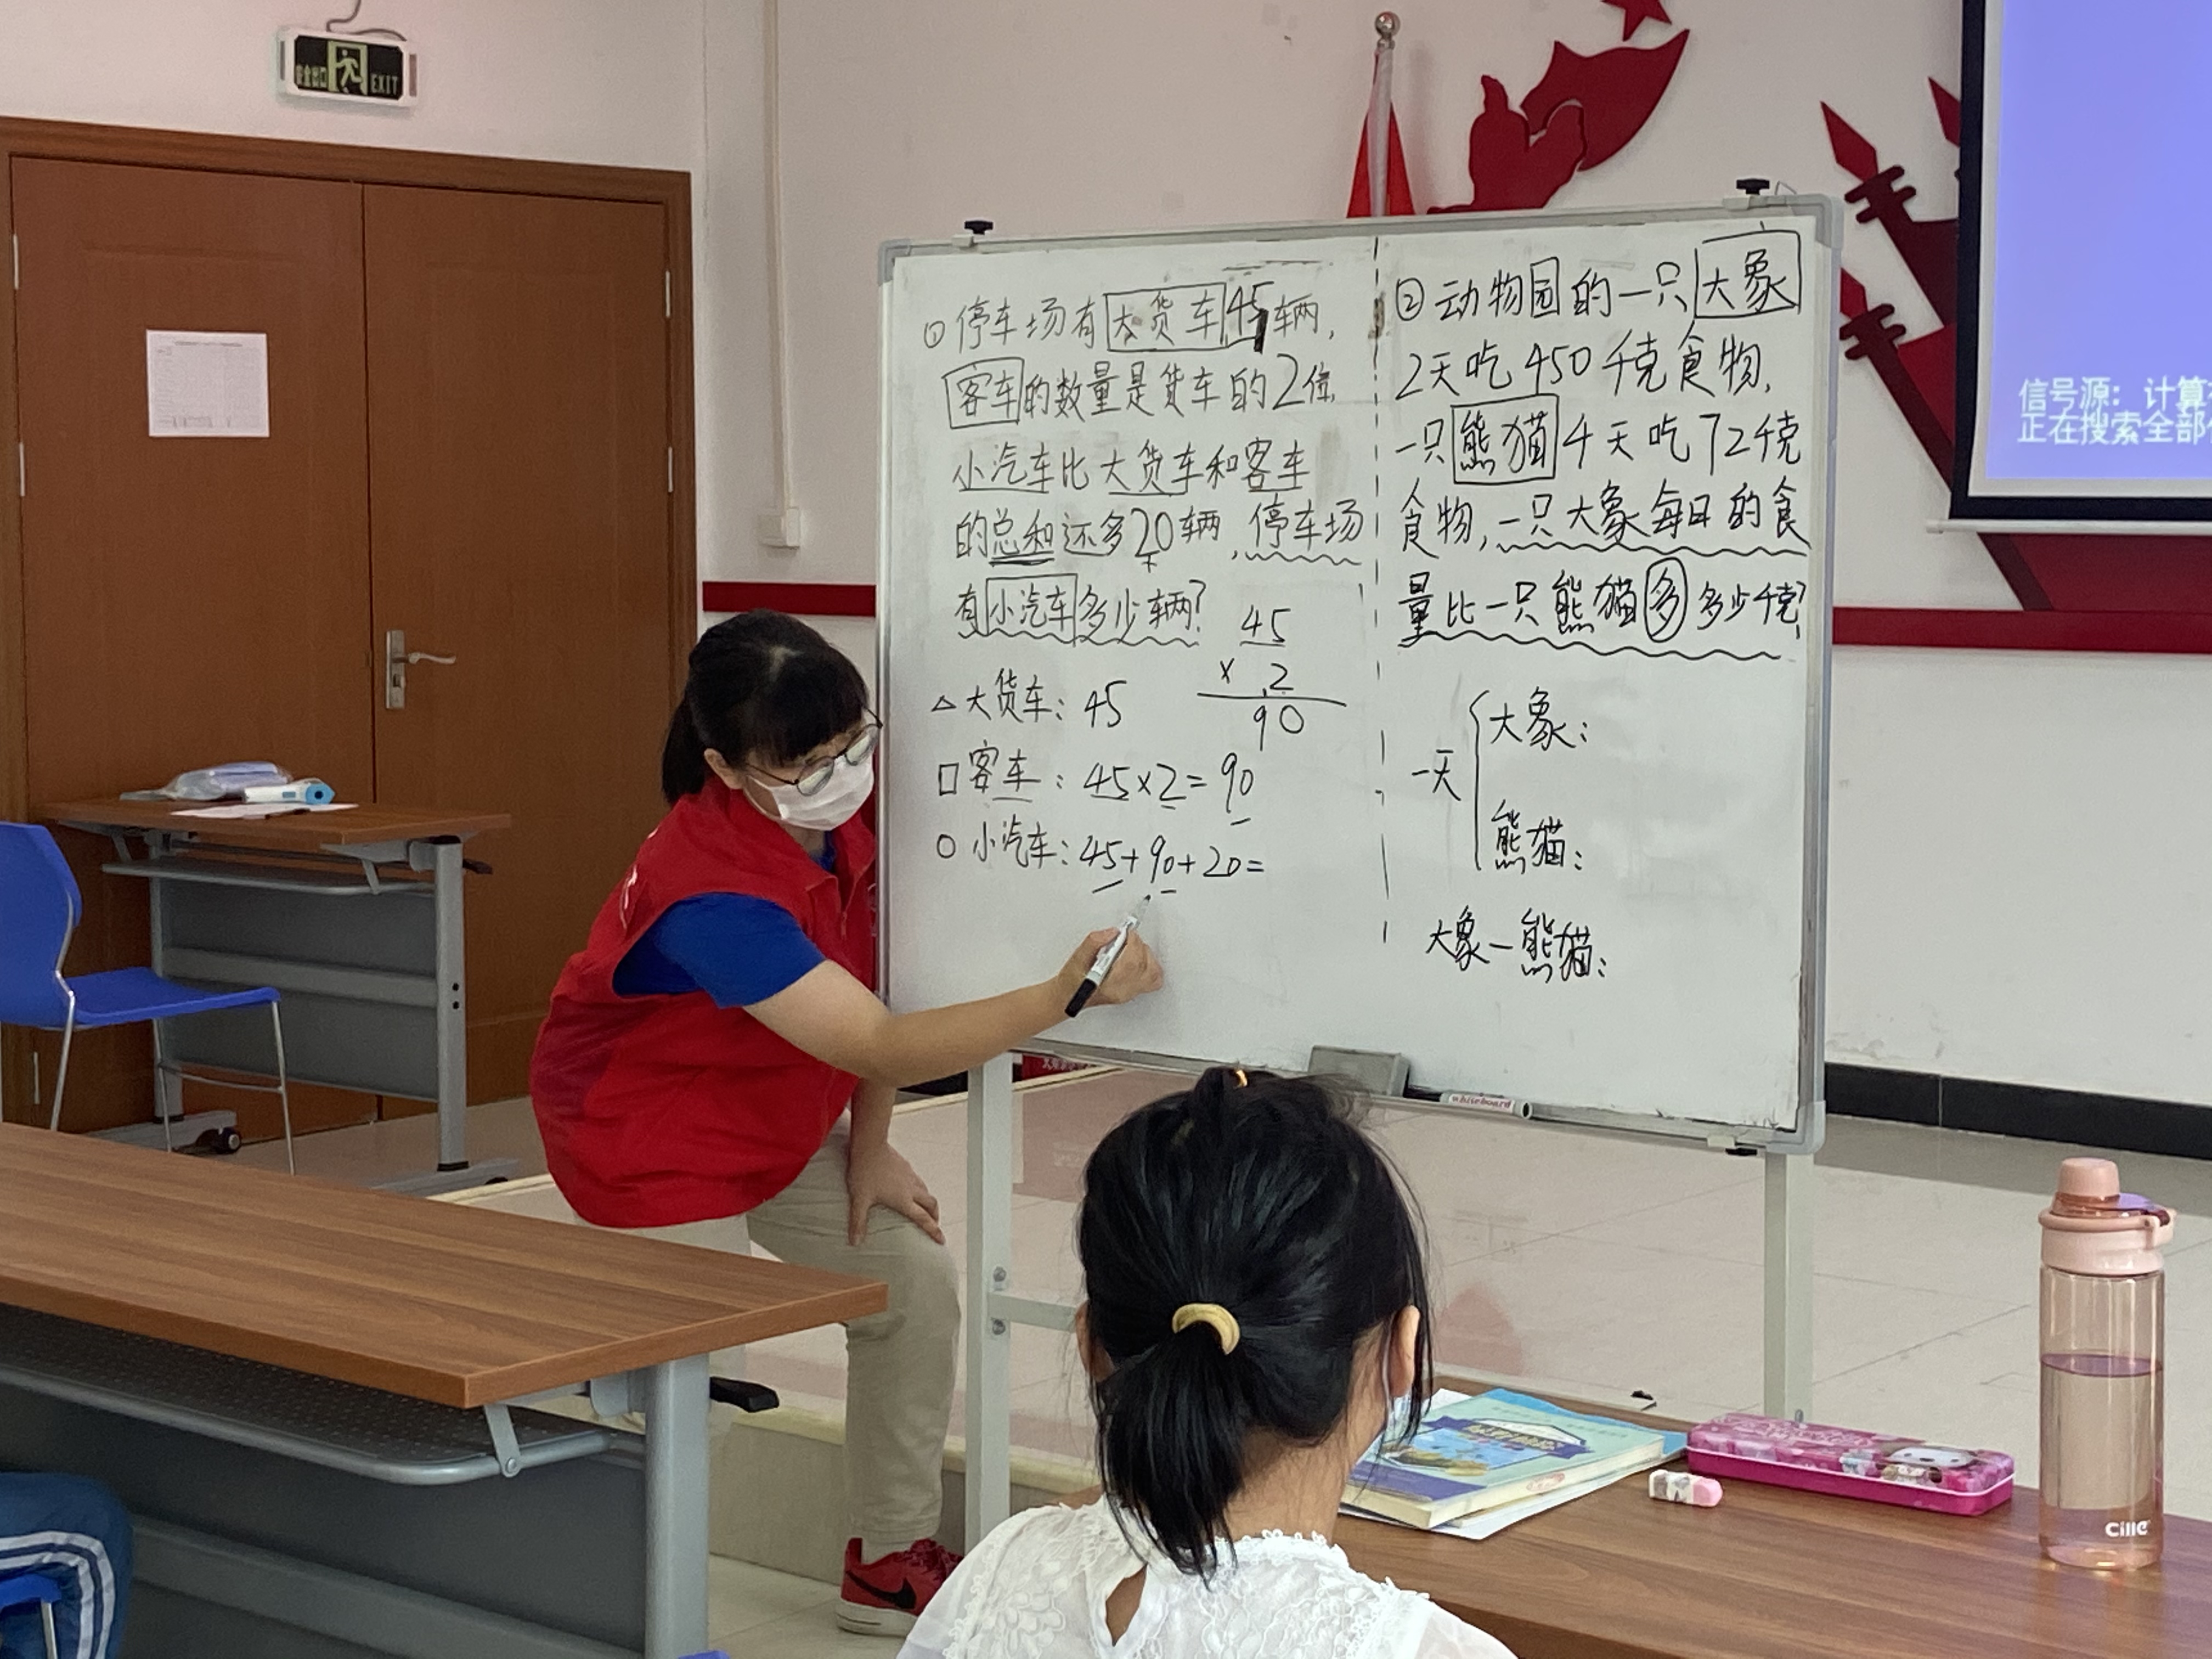 安全出口 EXIT
① 停车场有大货车45辆,
客车的数量是货车的2倍,
小汽车比大货车和客车
的总和还多20辆,停车场
有小汽车多少辆?
45
× 2
90
△大货车: 45
□客车: 45×2=90
○小汽车: 45+90+20=
② 动物园的一只大象
2天吃450千克食物,
一只熊猫4天吃72千克
食物,一只大象每日的食
量比一只熊猫多多少千克?
一天
大象:
熊猫:
大象-熊猫:
信号源: 计算
正在搜索全部
whiteboard
Cille